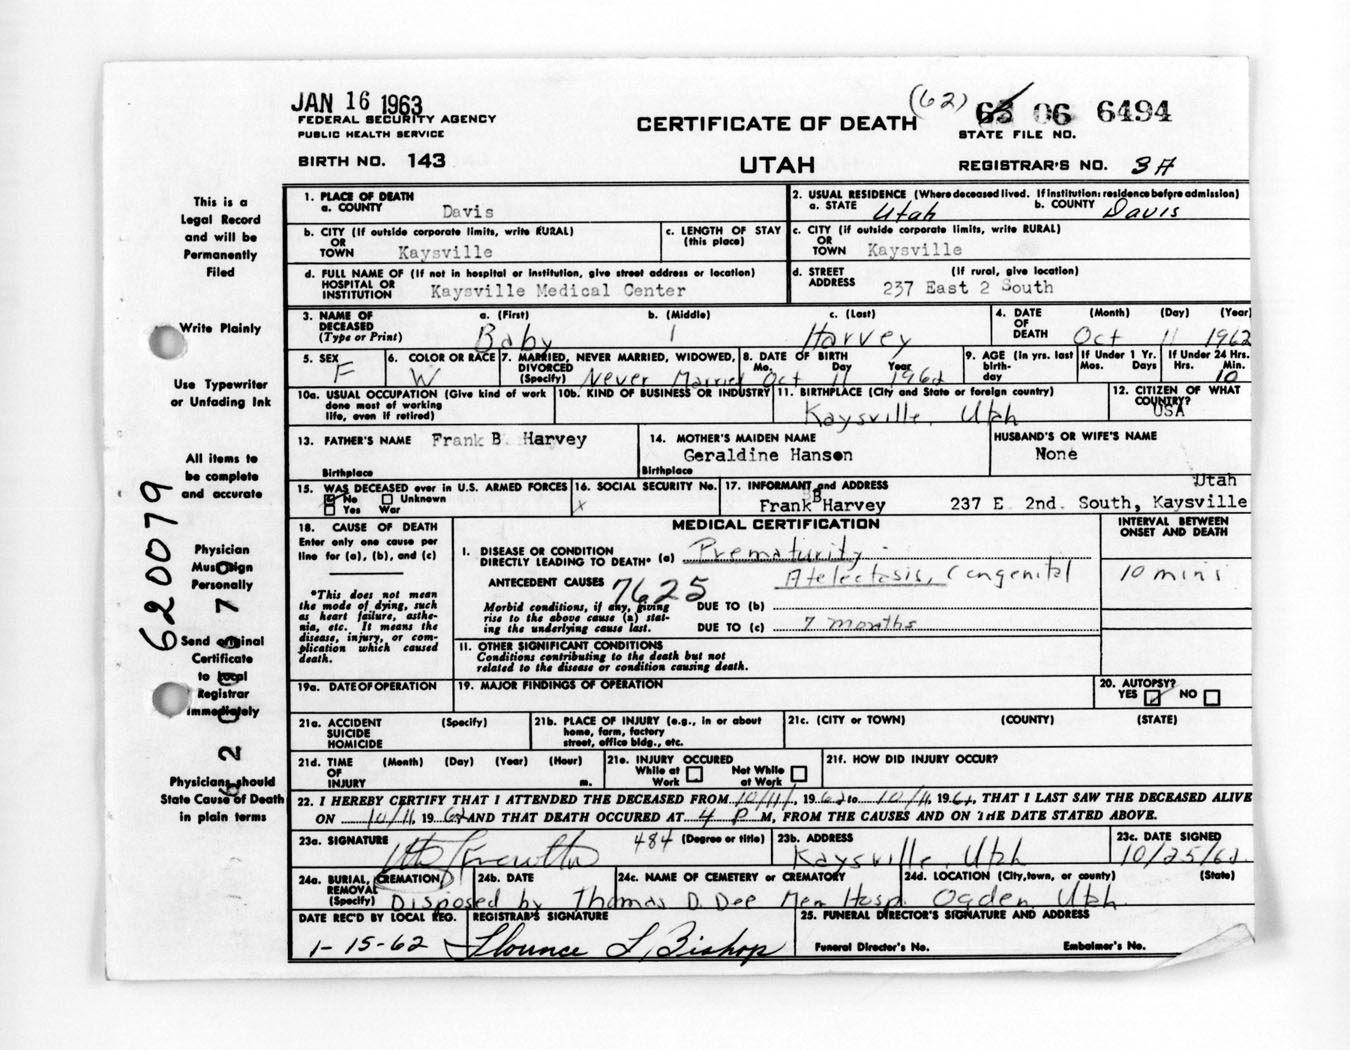 JAN 16 1963
FEDERAL SECURITY AGENCY
PUBLIC HEALTH SERVICE
BIRTH NO. 143
CERTIFICATE OF DEATH
UTAH
(62) 63 06 6494
STATE FILE NO.
REGISTRAR'S NO. 3A
This is a
Legal Record
and will be
Permanently
Filed
Write Plainly
Use Typewriter
or Unfading Ink
All items to
be complete
and accurate
Physician
Must Sign
Personally
Send original
Certificate
to Local
Registrar
immediately
Physicians should
State Cause of Death
in plain terms
620079
1. PLACE OF DEATH
a. COUNTY Davis
2. USUAL RESIDENCE (Where deceased lived. If institution: residence before admission)
a. STATE Utah b. COUNTY Davis
b. CITY (If outside corporate limits, write RURAL)
OR
TOWN Kaysville
c. LENGTH OF STAY
(this place)
c. CITY (If outside corporate limits, write RURAL)
OR
TOWN Kaysville
d. FULL NAME OF (If not in hospital or institution, give street address or location)
HOSPITAL OR
INSTITUTION Kaysville Medical Center
d. STREET (If rural, give location)
ADDRESS 237 East 2 South
3. NAME OF a. (First) b. (Middle) c. (Last)
DECEASED
(Type or Print) Baby Harvey
4. DATE (Month) (Day) (Year)
OF
DEATH Oct 11 1962
5. SEX F
6. COLOR OR RACE W
7. MARRIED, NEVER MARRIED, WIDOWED,
DIVORCED
(Specify) Never Married
8. DATE OF BIRTH
Mo. Day Year
Oct 11 1962
9. AGE (In yrs. last
birth-
day
If Under 1 Yr.
Mos. Days
If Under 24 Hrs.
Hrs. Min.
10
10a. USUAL OCCUPATION (Give kind of work
done most of working
life, even if retired)
10b. KIND OF BUSINESS OR INDUSTRY
11. BIRTHPLACE (City and State or foreign country)
Kaysville, Utah
12. CITIZEN OF WHAT
COUNTRY?
USA
13. FATHER'S NAME Frank B Harvey
Birthplace
14. MOTHER'S MAIDEN NAME
Geraldine Hanson
Birthplace
HUSBAND'S OR WIFE'S NAME
None
15. WAS DECEASED ever in U.S. ARMED FORCES
No Unknown
Yes War
16. SOCIAL SECURITY No.
X
17. INFORMANT and ADDRESS Utah
Frank B Harvey 237 E 2nd. South, Kaysville
18. CAUSE OF DEATH
Enter only one cause per
line for (a), (b), and (c)
*This does not mean
the mode of dying, such
as heart failure, asthe-
nia, etc. It means the
disease, injury, or com-
plication which caused
death.
MEDICAL CERTIFICATION
I. DISEASE OR CONDITION
DIRECTLY LEADING TO DEATH* (a) Prematurity
ANTECEDENT CAUSES 7625 Atelectasis, Congenital
Morbid conditions, if any, giving
rise to the above cause (a) stat-
ing the underlying cause last.
DUE TO (b)
DUE TO (c) 7 months
II. OTHER SIGNIFICANT CONDITIONS
Conditions contributing to the death but not
related to the disease or condition causing death.
INTERVAL BETWEEN
ONSET AND DEATH
10 mins
19a. DATE OF OPERATION
19. MAJOR FINDINGS OF OPERATION
20. AUTOPSY?
YES NO
21a. ACCIDENT (Specify)
SUICIDE
HOMICIDE
21b. PLACE OF INJURY (e.g., in or about
home, farm, factory
street, office bldg., etc.
21c. (CITY or TOWN) (COUNTY) (STATE)
21d. TIME (Month) (Day) (Year) (Hour)
OF
INJURY m.
21e. INJURY OCCURED
While at Not While
Work at Work
21f. HOW DID INJURY OCCUR?
22. I HEREBY CERTIFY THAT I ATTENDED THE DECEASED FROM 10/11, 1962 to 10/11, 1962, THAT I LAST SAW THE DECEASED ALIVE
ON 10/11, 1962 AND THAT DEATH OCCURED AT 4 P M, FROM THE CAUSES AND ON THE DATE STATED ABOVE.
23a. SIGNATURE 484 (Degree or title)
23b. ADDRESS
Kaysville, Utah
23c. DATE SIGNED
10/25/62
24a. BURIAL, CREMATION,
REMOVAL
(Specify) Disposed by Thomas D. Dee Mem Hosp. Ogden, Utah
24b. DATE
24c. NAME OF CEMETERY or CREMATORY
24d. LOCATION (City, town, or county) (State)
DATE REC'D BY LOCAL REG.
1-15-62
REGISTRAR'S SIGNATURE
Flounce L. Bishop
25. FUNERAL DIRECTOR'S SIGNATURE AND ADDRESS
Funeral Director's No. Embalmer's No.